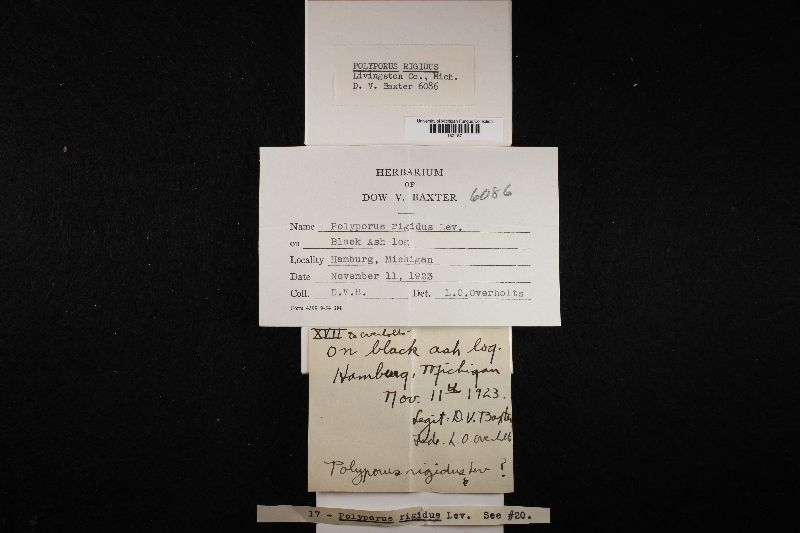 POLYPORUS RIGIDUS
Livingston Co., Mich.
D. V. Baxter 6086
University of Michigan Fungus Collection
HERBARIUM
OF
DOW V. BAXTER 6086
Name Polyporus rigidus Lev.
on Black Ash log
Locality Hamburg, Michigan
Date November 11, 1923
Coll. D.V.B. Det. L.O.Overholts
XVII to overholts
on black ash log.
Hamburg, Michigan
Nov. 11th 1923.
Legit: D.V. Baxter
L.O. Overholts
Polyporus rigidus Lev ?
17 - Polyporus rigidus Lev. See #20.